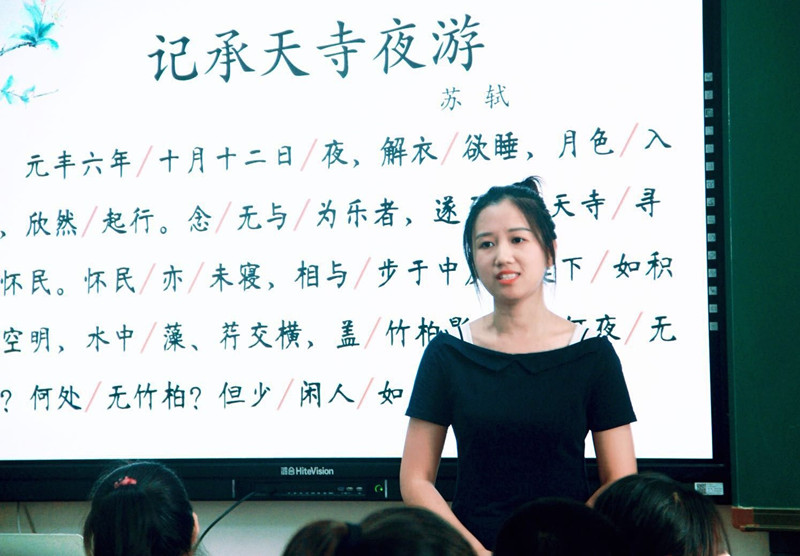 记承天寺夜游
苏 轼
元丰六年/十月十二日/夜，解衣/欲睡，月色/入
，欣然/起行。念/无与/为乐者，遂 天寺/寻
怀民。怀民/亦/未寝，相与/步于中 下/如积
空明，水中/藻、荇交横，盖/竹柏 夜/无
？何处/无竹柏？但少/闲人/如
鸿合 HiteVision